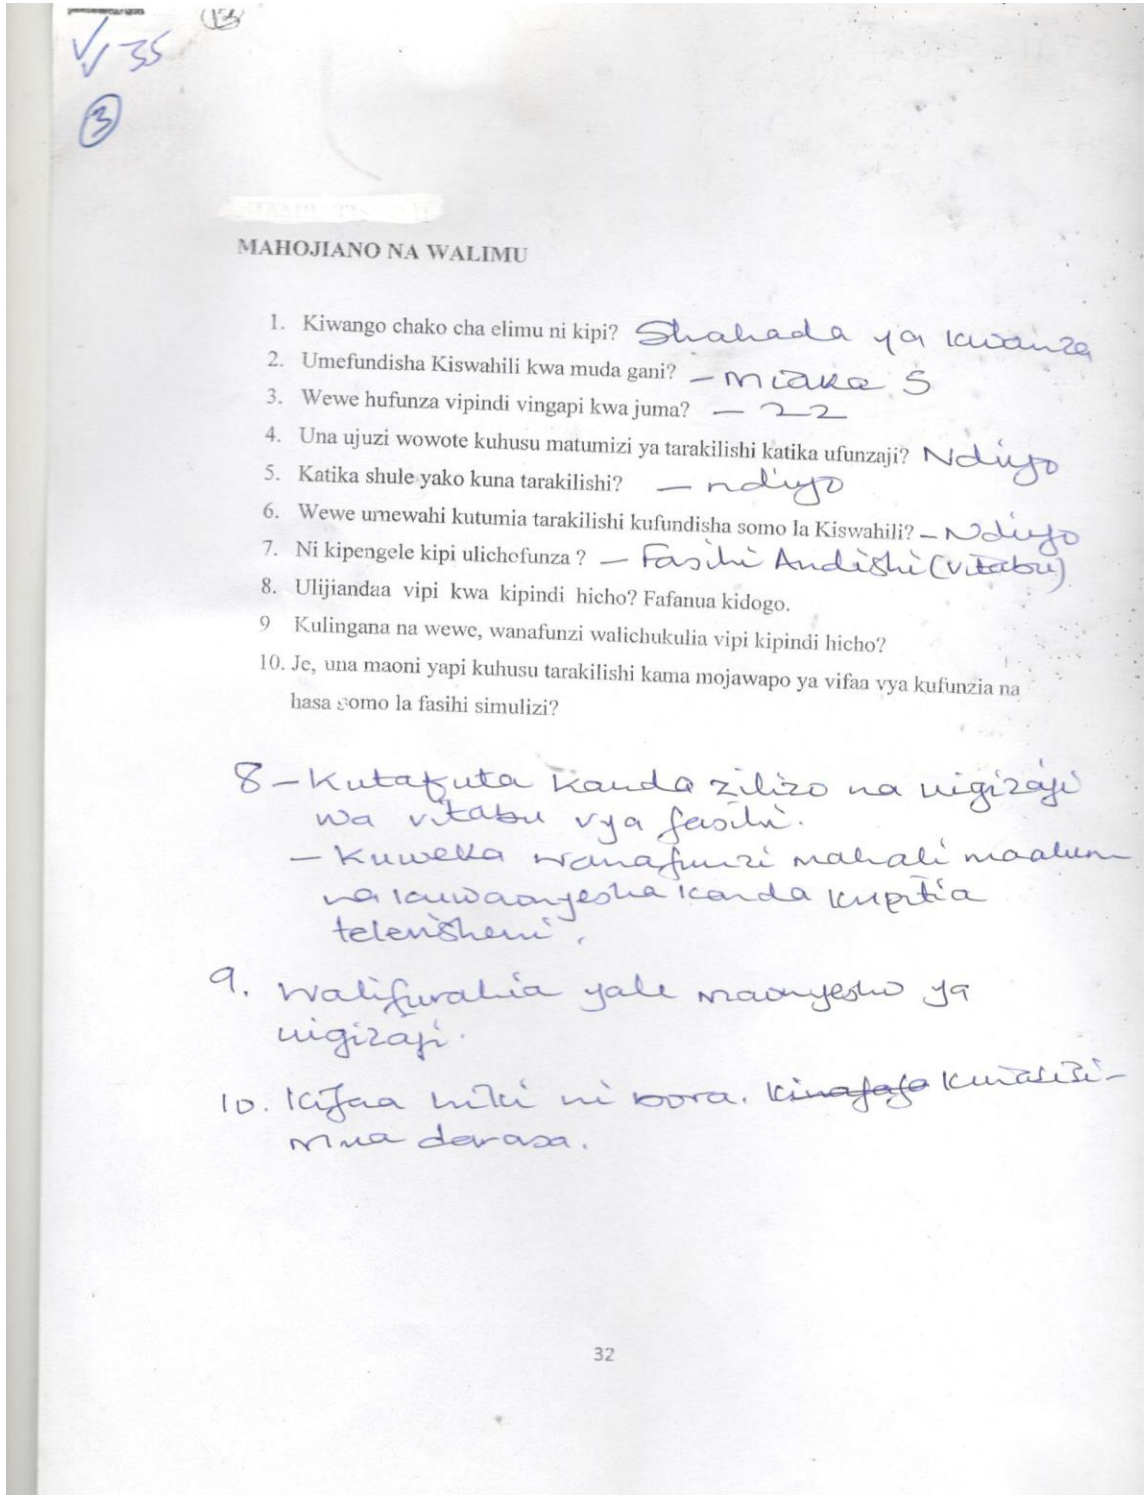 35
3
MAHOJIANO NA WALIMU
1. Kiwango chako cha elimu ni kipi? Shahada ya kwanza
2. Umefundisha Kiswahili kwa muda gani? – miaka 5
3. Wewe hufunza vipindi vingapi kwa juma? – 22
4. Una ujuzi wowote kuhusu matumizi ya tarakilishi katika ufunzaji? Ndiyo
5. Katika shule yako kuna tarakilishi? – ndiyo
6. Wewe umewahi kutumia tarakilishi kufundisha somo la Kiswahili? – Ndiyo
7. Ni kipengele kipi ulichofunza ? – Fasihi Andishi (vitabu)
8. Ulijiandaa vipi kwa kipindi hicho? Fafanua kidogo.
9 Kulingana na wewe, wanafunzi walichukulia vipi kipindi hicho?
10. Je, una maoni yapi kuhusu tarakilishi kama mojawapo ya vifaa vya kufunzia na
hasa somo la fasihi simulizi?
8 – Kutafuta kanda zilizo na uigizaji
wa vitabu vya fasihi.
– Kuweka wanafunzi mahali maalum
na kuwaonyesha kanda kupitia
televisheni.
9. Walifurahia yale maonyesho ya
uigizaji.
10. Kifaa hiki ni bora.
darasa.
32